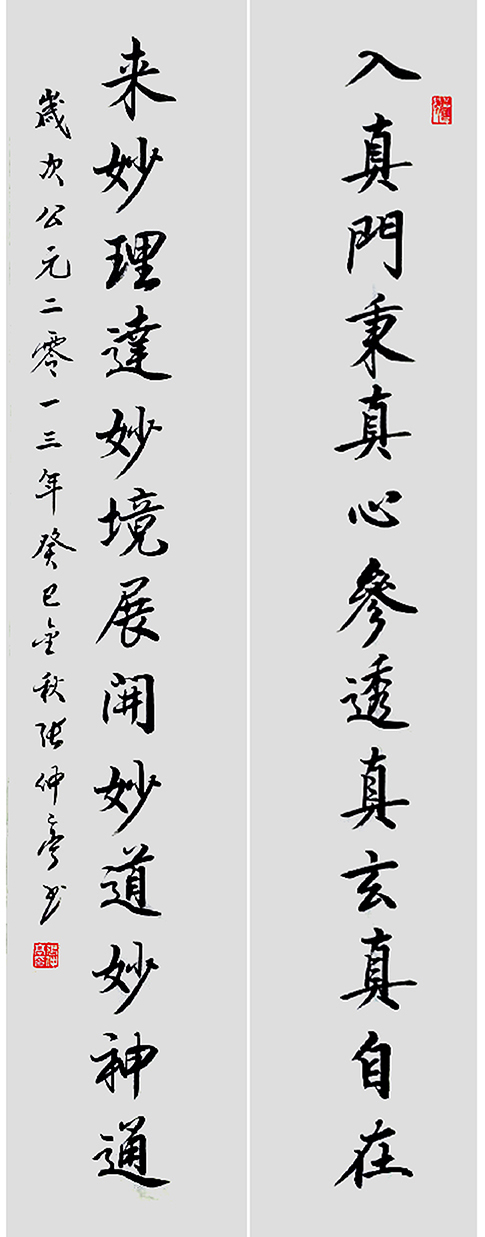 入真門秉真心參透真玄真自在
来妙理達妙境展開妙道妙神通
歲次公元二零一三年癸巳金秋張仲亭书